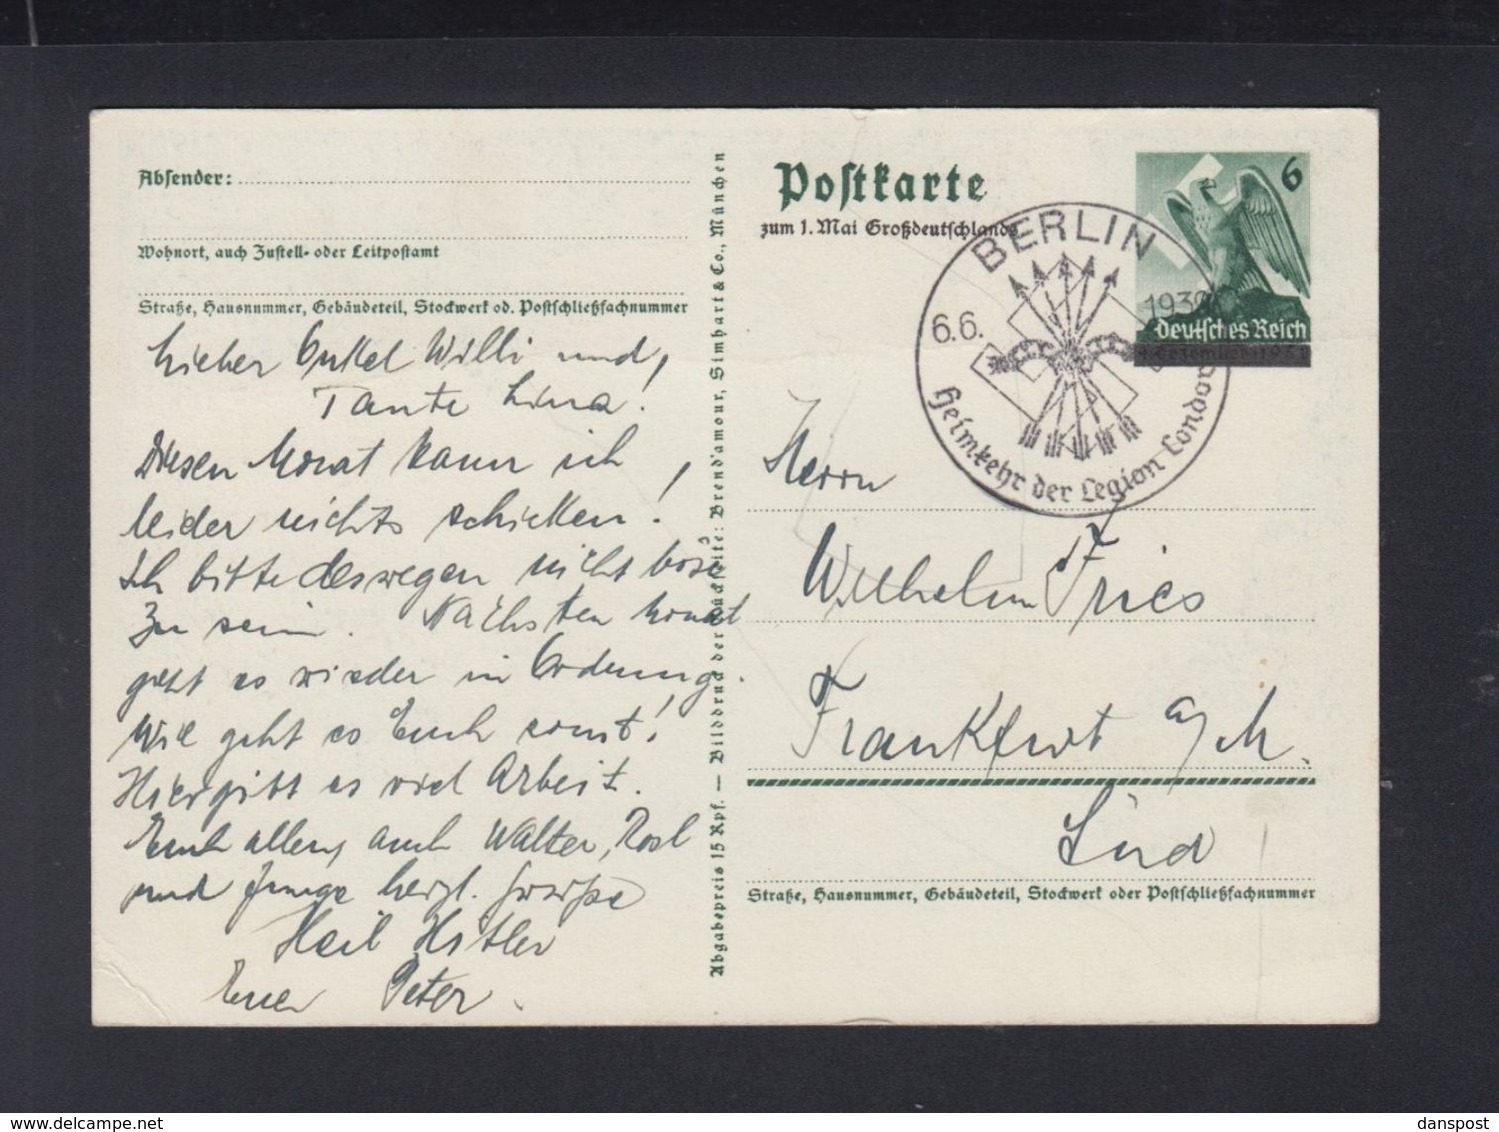 Absender:
Wohnort, auch Zustell- oder Leitpostamt
Straße, Hausnummer, Gebäudeteil, Stockwerk od. Postschließfachnummer
Lieber Onkel Willi und
Tante Lina!
Diesen Monat kann ich
leider nichts schicken!
Ich bitte deswegen nicht böse
zu sein. Nächsten Monat
geht es wieder in Ordnung.
Wie geht es Euch sonst!
Hier gibt es viel Arbeit.
Euch allen, auch Walter, Rosl
und Junge herzl. Grüße
Heil Hitler
Euer Peter.
Abgabepreis 15 Rpf. — Bilddruck der Rückseite: Brend'amour, Simhart & Co., München
Postkarte
zum 1. Mai Großdeutschlands
6
Deutsches Reich
BERLIN
6.6. 1939
Heimkehr der Legion Condor
Herrn
Wilhelm Fries
Frankfurt a/M.
Süd
Straße, Hausnummer, Gebäudeteil, Stockwerk oder Postschließfachnummer
danspost